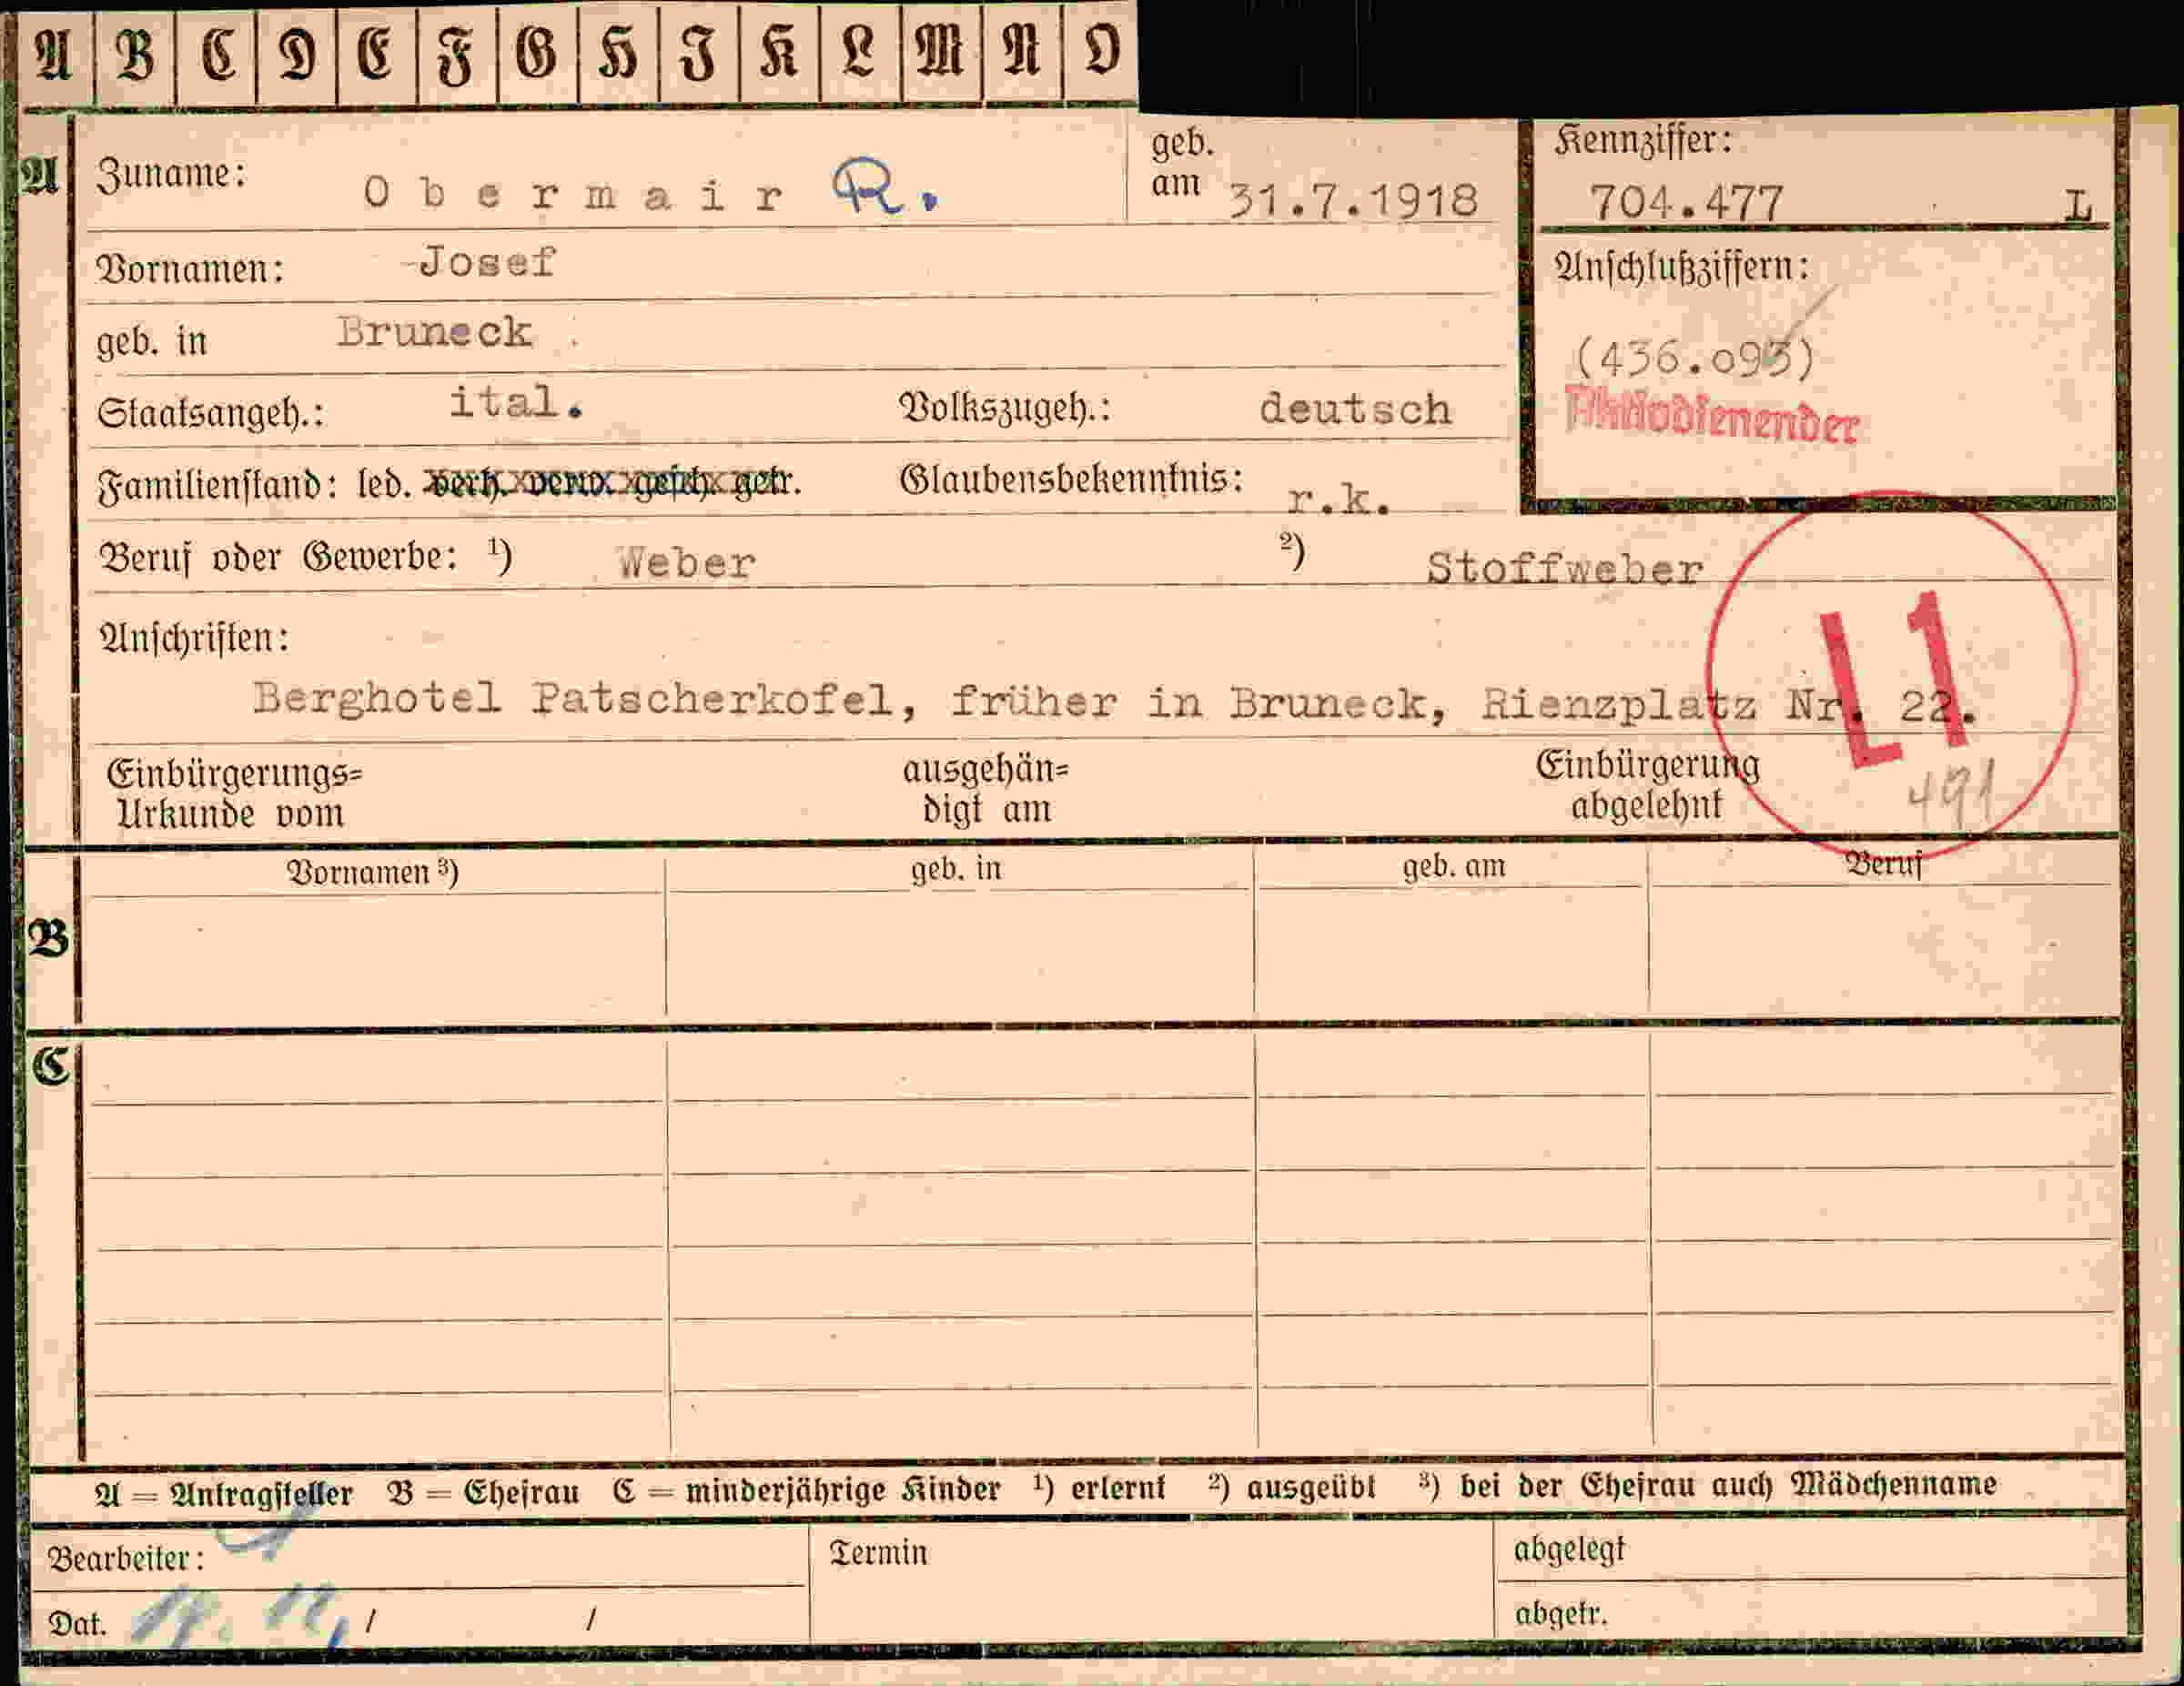 A B C D E F G H I K L M N O
A Zuname: Obermair R. geb. am 31.7.1918 Kennziffer: 704.477 L
Vornamen: -Josef Anschlußziffern:
geb. in Bruneck (436.093)
Staatsangeh.: ital. Volkszugeh.: deutsch Aktivdienender
Familienstand: led. verh. verw. gesch. getr. Glaubensbekenntnis: r.k.
Beruf oder Gewerbe: ¹) Weber ²) Stoffweber
Anschriften:
L1
Berghotel Patscherkofel, früher in Bruneck, Rienzplatz Nr. 22.
Einbürgerungs= ausgehän= Einbürgerung
Urkunde vom digt am abgelehnt 491
Vornamen ³) geb. in geb. am Beruf
B
C
A = Antragsteller B = Ehefrau C = minderjährige Kinder ¹) erlernt ²) ausgeübt ³) bei der Ehefrau auch Mädchenname
Bearbeiter: Termin abgelegt
Dat. / / abgetr.